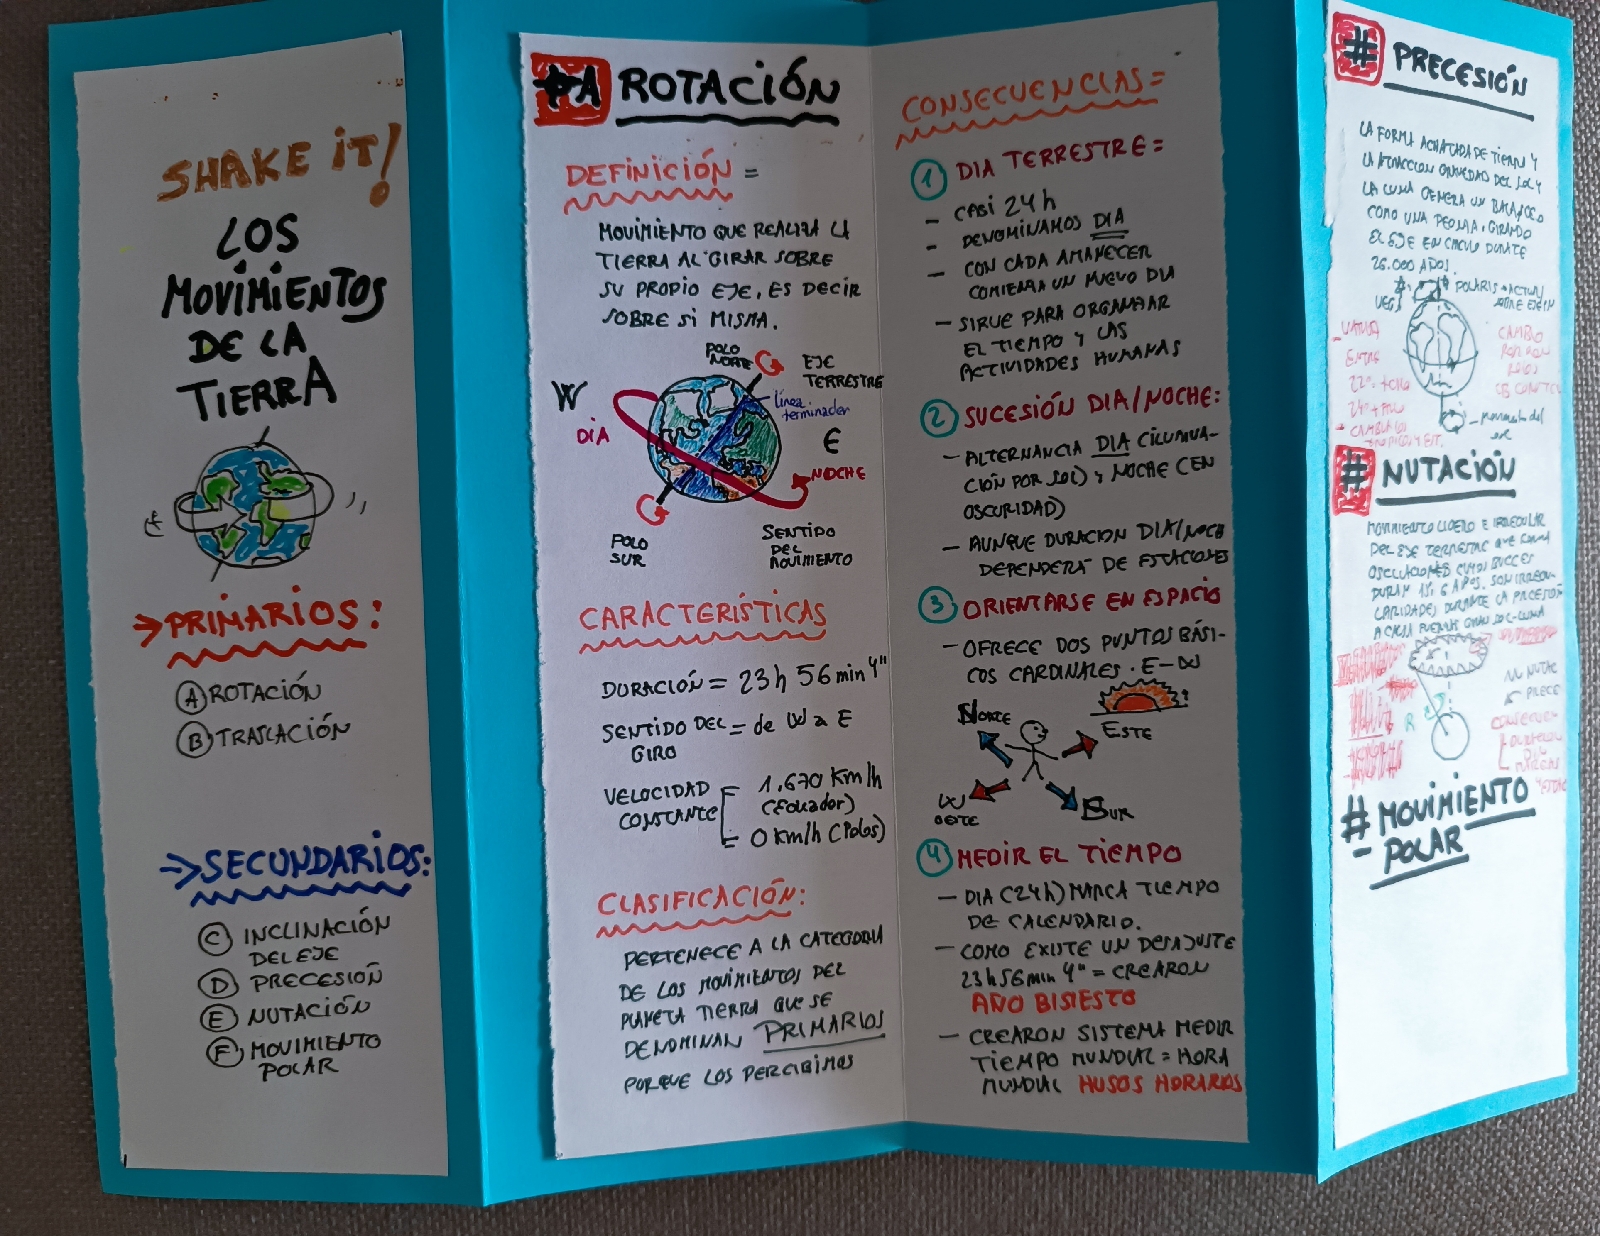 SHAKE IT!
LOS
MOVIMIENTOS
DE LA
TIERRA
→PRIMARIOS:
A ROTACIÓN
B TRASLACIÓN
→SECUNDARIOS:
C INCLINACIÓN
DEL EJE
D PRECESIÓN
E NUTACIÓN
F MOVIMIENTO
POLAR
#A ROTACIÓN
DEFINICIÓN =
MOVIMIENTO QUE REALIZA LA
TIERRA AL GIRAR SOBRE
SU PROPIO EJE, ES DECIR
SOBRE SI MISMA.
POLO
NORTE
EJE
TERRESTRE
W
línea
terminador
DIA
E
NOCHE
POLO
SUR
SENTIDO
DEL
MOVIMIENTO
CARACTERÍSTICAS
DURACIÓN = 23h 56min 4"
SENTIDO DEL = de W a E
GIRO
VELOCIDAD
CONSTANTE
1.670 Km/h
(Ecuador)
0 Km/h (Polos)
CLASIFICACIÓN:
PERTENECE A LA CATEGORIA
DE LOS MOVIMIENTOS DEL
PLANETA TIERRA QUE SE
DENOMINAN PRIMARIOS
PORQUE LOS PERCIBIMOS
CONSECUENCIAS=
1 DIA TERRESTRE=
- CASI 24h
- DENOMINAMOS DIA
- CON CADA AMANECER
COMIENZA UN NUEVO DIA
- SIRVE PARA ORGANIZAR
EL TIEMPO Y LAS
ACTIVIDADES HUMANAS
2 SUCESIÓN DIA/NOCHE:
- ALTERNANCIA DIA (ILUMINA-
CIÓN POR SOL) y NOCHE (EN
OSCURIDAD)
- AUNQUE DURACION DIA/NOCH
DEPENDERÁ DE ESTACIONES
3 ORIENTARSE EN ESPACIO
- OFRECE DOS PUNTOS BÁSI-
COS CARDINALES. E-W
NORTE
ESTE
W
OESTE
SUR
4 MEDIR EL TIEMPO
- DIA (24h) MARCA TIEMPO
DE CALENDARIO.
- COMO EXISTE UN DESAJUSTE
23h56min 4" = CREARON
AÑO BISIESTO
- CREARON SISTEMA MEDIR
TIEMPO MUNDIAL = HORA
MUNDIAL HUSOS HORARIOS
# PRECESIÓN
LA FORMA ACHATADA DE TIERRA Y
LA ATRACCION GRAVEDAD DEL SOL Y
LA LUNA GENERA UN BALANCEO
COMO UNA PEONZA, GIRANDO
EL EJE EN CIRCULO DURATE
26.000 AÑOS.
POLARIS
ENTRE
# NUTACIÓN
MOVIMIENTO LIGERO E IRREGULAR
DEL EJE TERRESTRE QUE
DURAN 18,6 AÑOS. SON IRREGU-
LARIDADES DURANTE LA PRECESIÓN
R
# MOVIMIENTO
POLAR